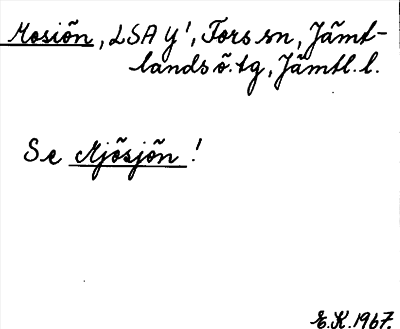 Mosiõn, LSA Y', Fors sn, Jämt-
lands ö. tg, Jämtl. l.
Se Mjõsjõn!
E.K. 1967.